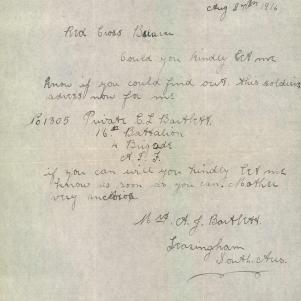 Aug 8th 1916
Red Cross Bureau
Could you kindly let me
know if you could find out this soldiers
adress now for me
No 1305 Private C. L Bartlett.
16th Battalion
4 Brigade
A. I. F.
if you can will you kindly let me
know as soon as you can. Mother
very anctious
Mrs. A. J. Bartlett.
Leasingham
South. Aus.